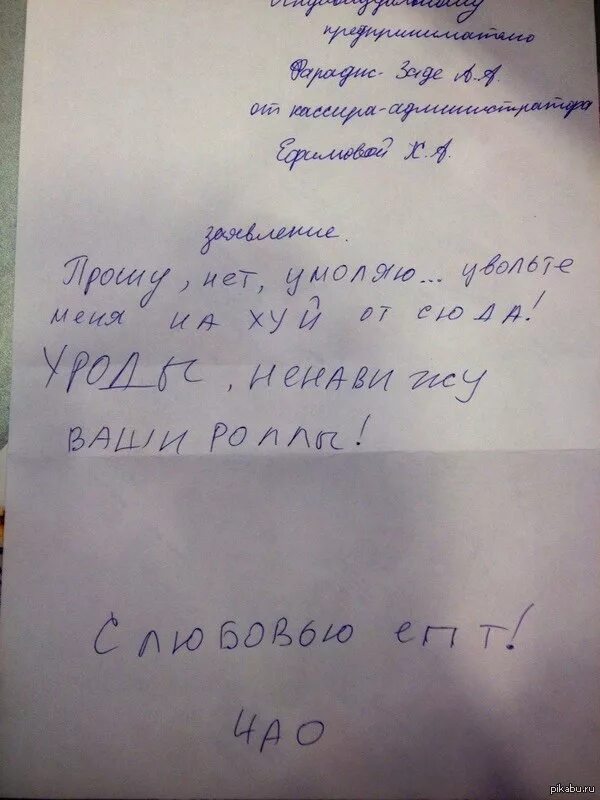 Индивидуальному
предпринимателю
Фарадис-Заде А.А.
от кассира-администратора
Ефимовой Х.А.
заявление.
Прошу, нет, умоляю... увольте
меня на хуй от сюда!
УРОДЫ, ненавижу
ВАШИ РОЛЛЫ!
С любовью епт!
ЧАО
pikabu.ru